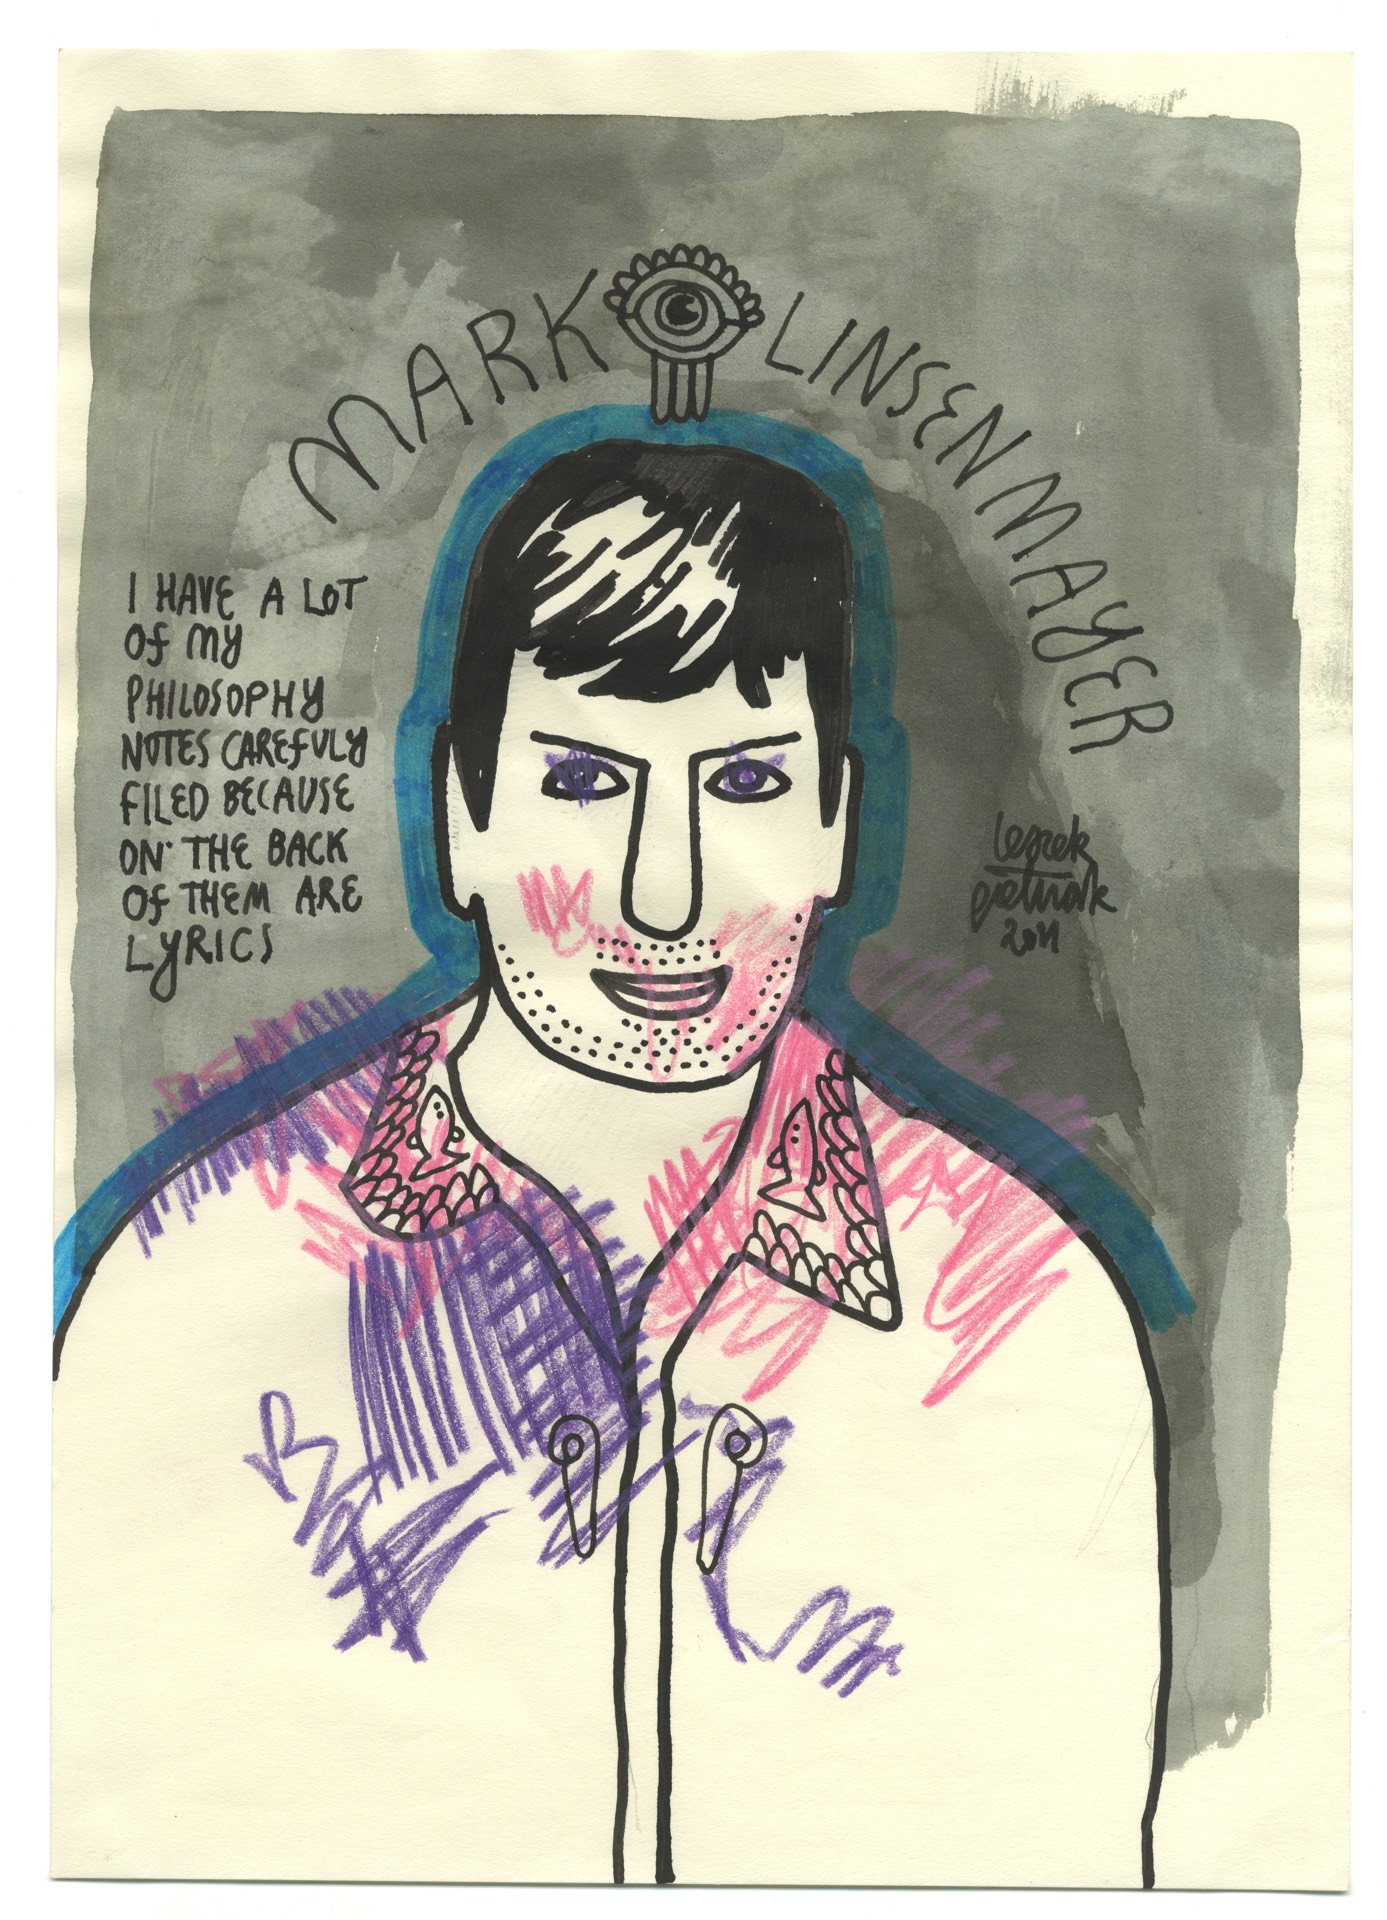 MARK LINSENMAYER
I HAVE A LOT
OF MY
PHILOSOPHY
NOTES CAREFULY
FILED BECAUSE
ON THE BACK
OF THEM ARE
LYRICS
2011